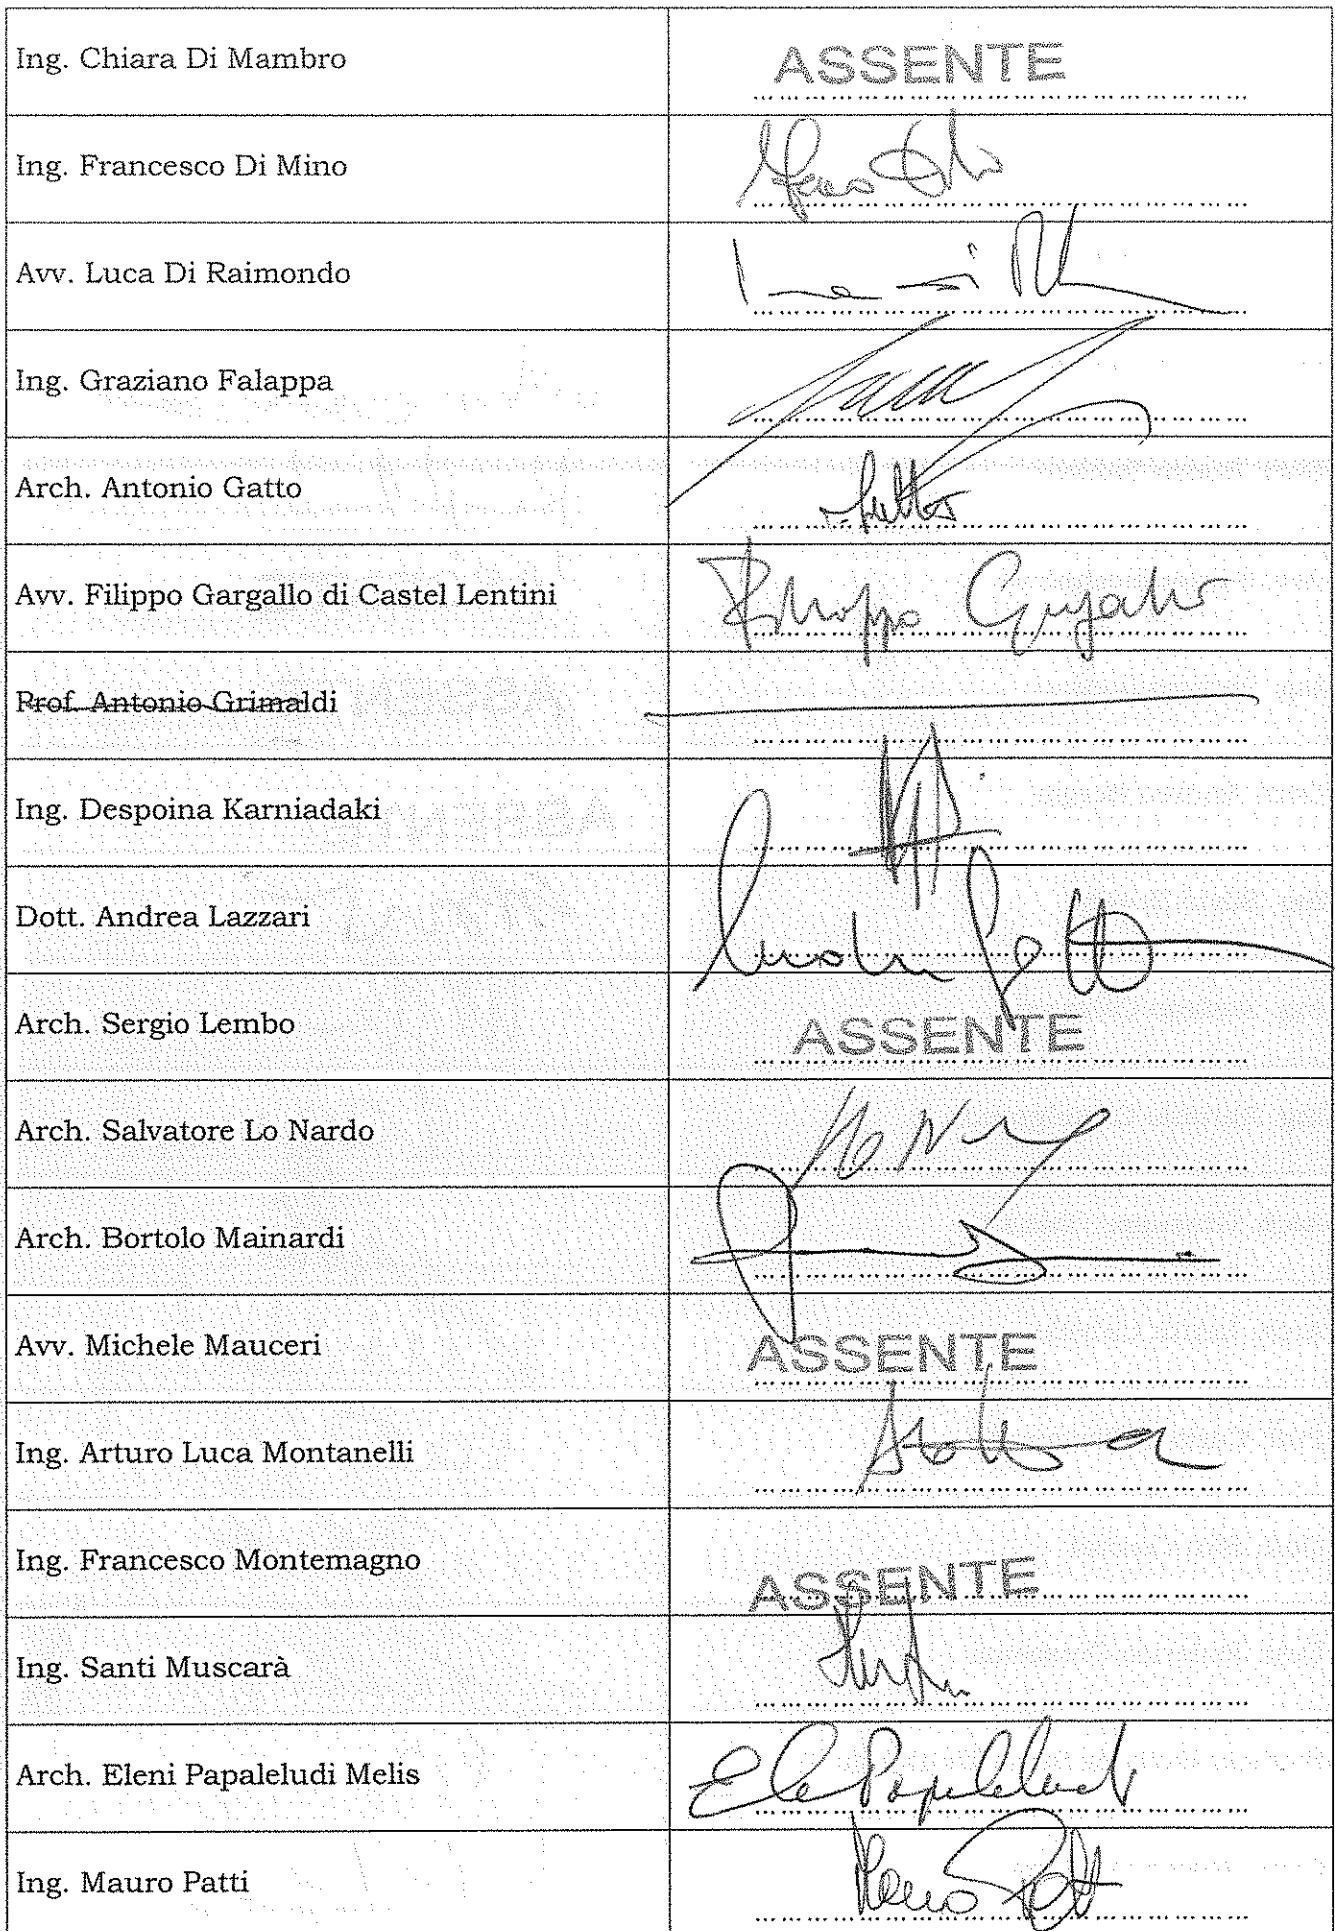 Ing. Chiara Di Mambro ASSENTE
Ing. Francesco Di Mino
Avv. Luca Di Raimondo
Ing. Graziano Falappa
Arch. Antonio Gatto
Avv. Filippo Gargallo di Castel Lentini Filippo Gargallo
Prof. Antonio Grimaldi
Ing. Despoina Karniadaki
Dott. Andrea Lazzari
Arch. Sergio Lembo ASSENTE
Arch. Salvatore Lo Nardo
Arch. Bortolo Mainardi
Avv. Michele Mauceri ASSENTE
Ing. Arturo Luca Montanelli
Ing. Francesco Montemagno ASSENTE
Ing. Santi Muscarà
Arch. Eleni Papaleludi Melis
Ing. Mauro Patti